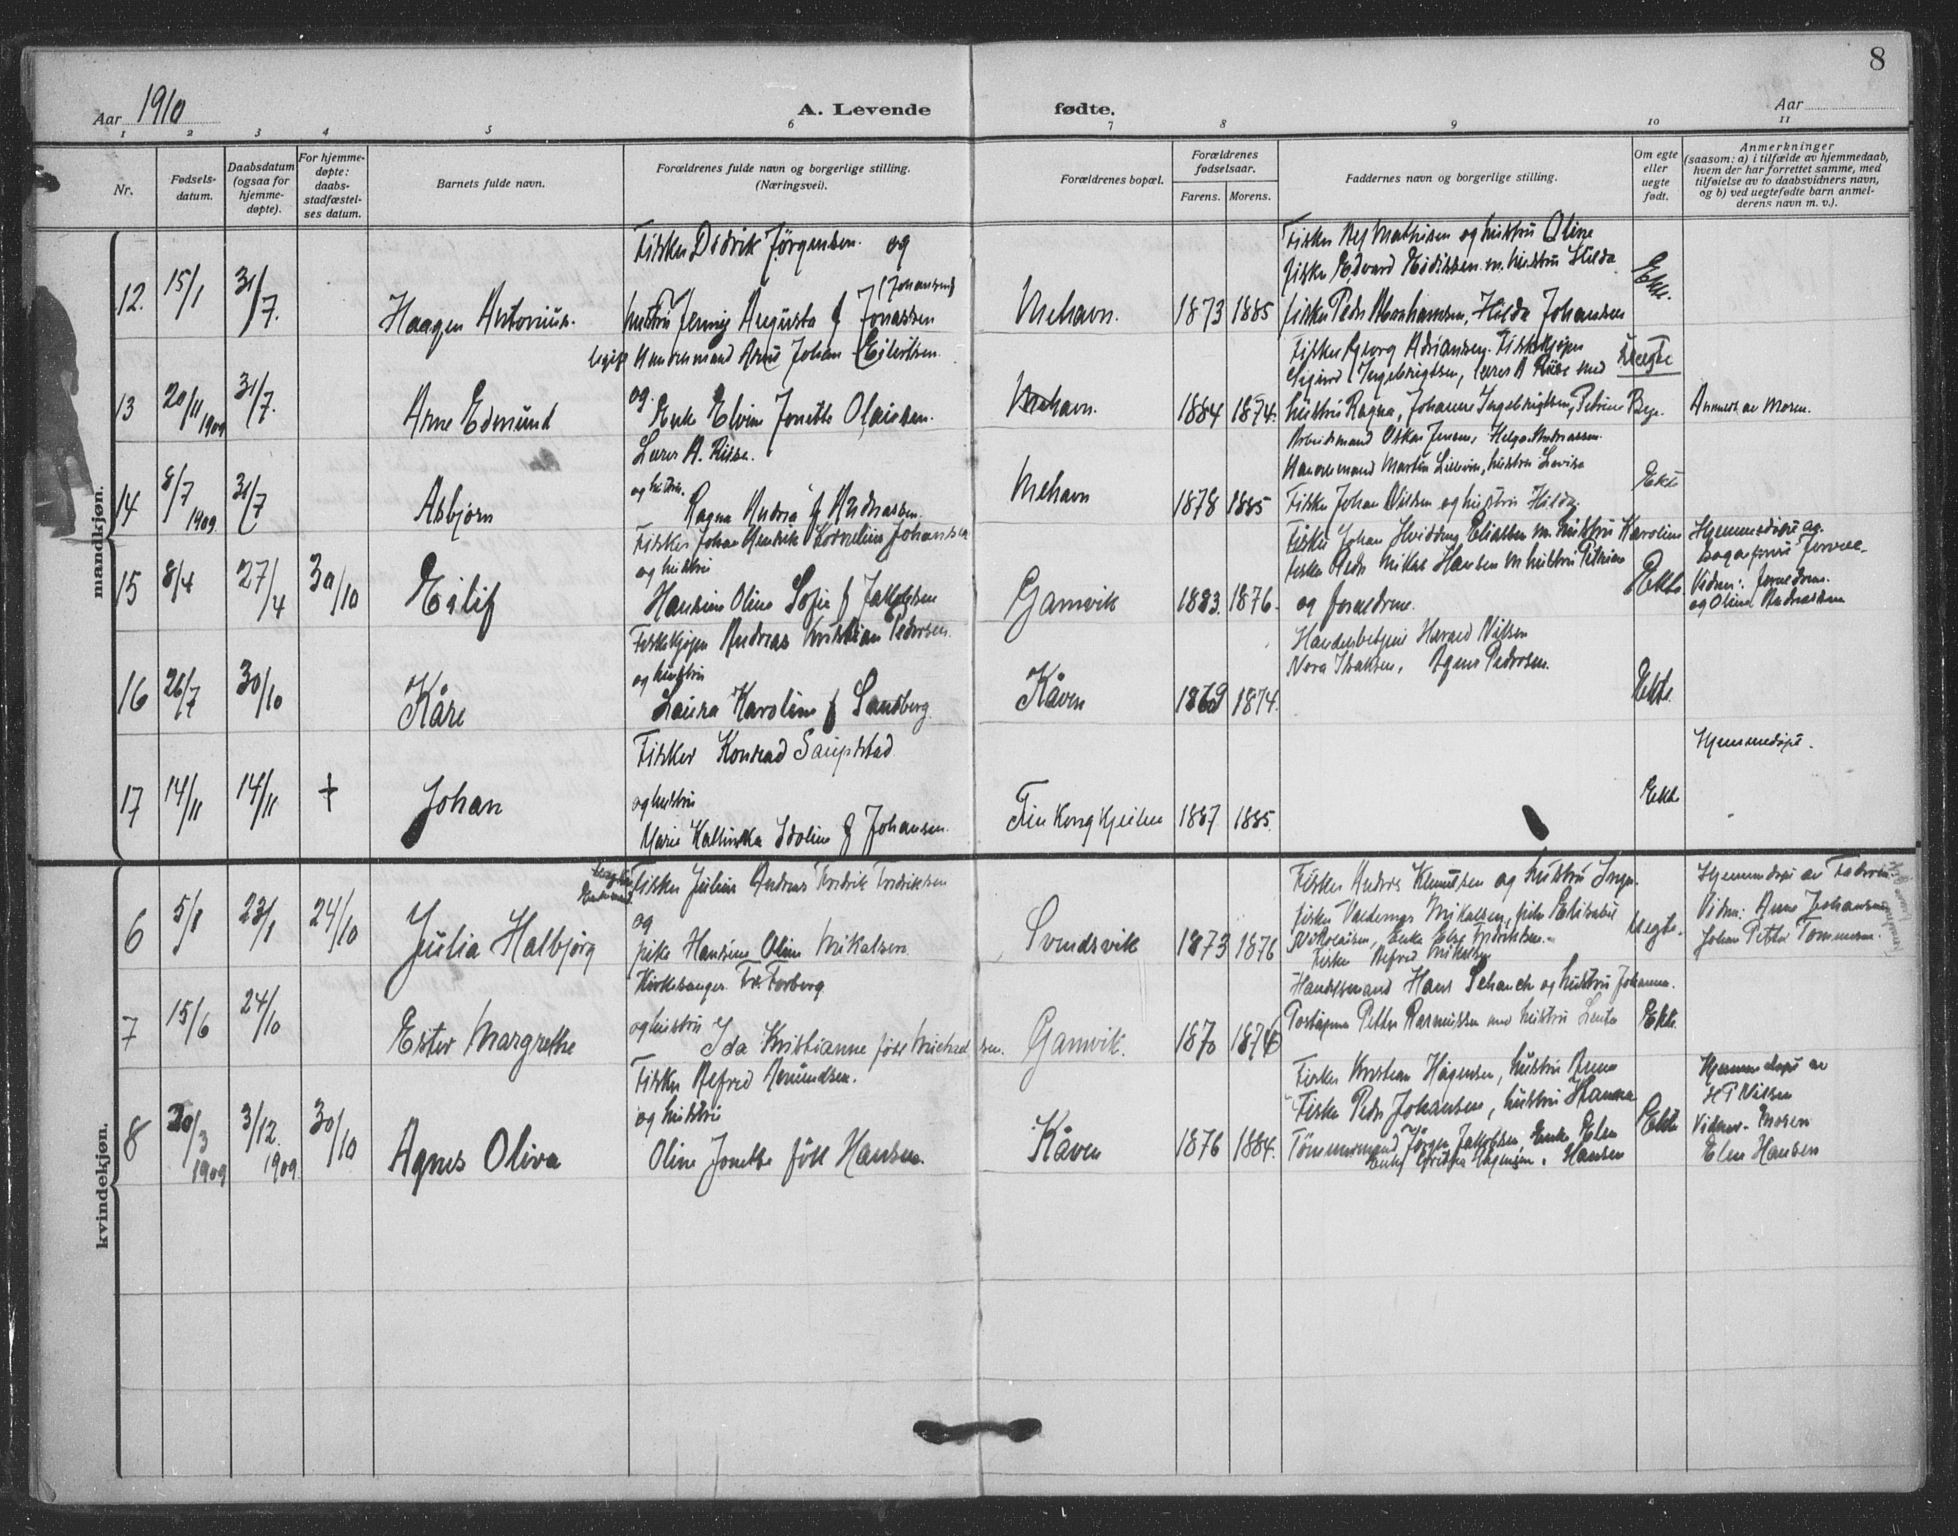 8
Aar 1910 A. Levende fødte. Aar
1 2 3 4 5 6 7 8 9 10 11
Nr.
Fødsels-
datum.
Daabsdatum
(ogsaa for
hjemme-
døpte).
For hjemme-
døpte:
daabs-
stadfæstel-
ses datum.
Barnets fulde navn.
Forældrenes fulde navn og borgerlige stilling.
(Næringsvei).
Forældrenes bopæl.
Forældrenes
fødselsaar.
Farens. Morens.
Faddernes navn og borgerlige stilling.
Om egte
eller
uegte
født.
Anmerkninger
(saasom: a) i tilfælde av hjemmedaab,
hvem der har forrettet samme, med
tilføielse av to daabsvidners navn,
og b) ved uegtefødte barn anmel-
derens navn m. v.).
mandkjøn.
12. 15/1 31/7. Haagen Antonius.
Fisker Didrik Jørgensen. og
(Johansen)
hustru Jenny Augusta f Jonassen
Mehavn. 1873 1885
Fisker Alf Mathisen og hustru Oline
fisker Edvard m. hustru Hilda
fisker Peder Abrahamsen, Hilda Johansen
Ekte.
13 20/11 1909 31/7. Arne Edmund
Handelsmand Arne Johan Eilertsen
og.
Enke Elvine Jonette Olaissen.
Mehavn. 1884 1874.
Fisker Georg Adriansen. Fiskekjøper
Sigurd Ingebrigtsen, Lærer A Riise med
hustru Ragna, Johanne Ingebrigtsen, Petrine
Uegte
Anmeldt av Moren.
14 8/7 1909 31/7 Asbjørn
Lærer A. Riise.
og hustru.
Ragna Andrea f Andreassen.
Mehavn 1878 1885
Arbeidsmand Oskar Jensen, Helga Andreassen.
Handelsmand Martin hustru Lovise
Fisker Johan Nilsen og hustru Hilda
Ekte
15 8/4 27/4 30/10 Eilif
Fisker Johan Henrik Kornelius Johansen
og hustru
Hansine Oline Sofie f Jakobsen
Gamvik 1883. 1876.
Fisker Johan Hvidding Eliassen m. hustru Karoline
fisker Peder Mikal Hansen m hustru
og forældrene.
Ekte.
Hjemmedøpt av
Vidner: forældrene.
og Olina Andreassen
16 26/7 30/10 Kåre
Fiskekjøper Andreas Kristian Pedersen.
og hustru
Laura Karoline f Sandberg.
Kåven 1869 1874.
Handelsbetjent Harald Nilsen
Nora Isaksen, Agnes Pedersen.
Ekte.
17 14/11 14/11 + Johan
Fisker Konrad Saupstad
og hustru
Marie Kathinka Idoline f Johansen.
Finkongkjeilen 1887 1885.
Ekte
Hjemmedøpt.
kvindekjøn.
6 5/1 23/1 24/10 Julia Halbjørg
Fisker Julius Andreas Fredrik Fredriksen
og
pike Hansine Oline Mikalsen
Svendsvik 1873 1876
Fisker Anders Knudsen og hustru Inga.
fisker Mikalsen, pike Elisabet
Nikolaisen, Enke Else Fredriksen.
Fisker Alfred Mikalsen
Uegte.
Hjemmedøpt av
Vidner: Anne Johansen
Johan Petter Tommesen.
7 15/6 24/10 Ester Margrethe
Kirkesanger Fr. Forberg
og hustru
Ida Kristianne født Michaelsen.
Gamvik. 1870 1876
Handelsmand Hans Schanch og hustru Johanna.
Petter Rasmussen med hustru
Ekte.
8 20/3 1909 3/12. 1909. 30/10 Agnes Oliva
Fisker Alfred Amundsen.
og hustru
Oline Jonette født Hansen.
Kåven 1876 1884.
Fisker Kristian Hågensen, hustru Anna
Fisker Peder Johansen, hustru Hanna
Tømmermand Jørgen Jakobsen, Enke Elen
Hågensen. Hansen
Ekte
Hjemmedøpt av
H P Nilsen
Vidner. Moren
Elen Hansen